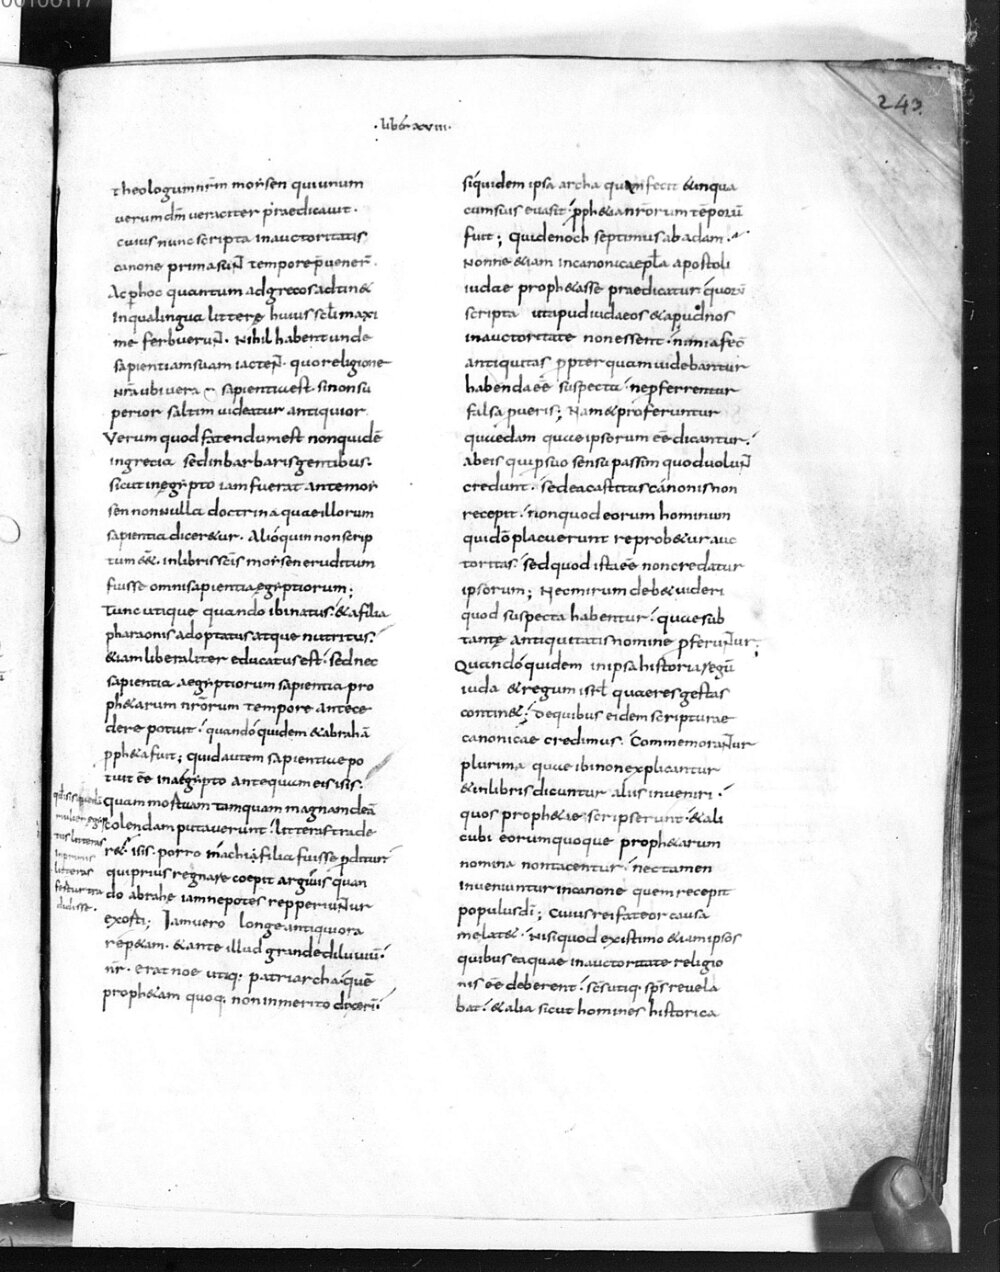 00100117
243
·liber xviii·
theologum nr̄m moysen qui unum
uerum dm̄ ueraciter praedicauit·
cuius nunc scripta in auctoritatis
canone prima sunt tempore p̄uener̄·
Ac p hoc quantum ad grecos adtinet
In qua lingua litterę huius scl̄i maxi
me ferbuerunt· Nihil habent unde
sapientiam suam iactent· quo religione
nr̄a ubi uera sapientia est si non su
perior saltim uideatur antiquior
Verum quod fatendum est non quidē
in grecia sed in barbaris gentibus·
sicut in egypto iam fuerat ante moy
sen non nulla doctrina quae illorum
sapientia diceretur· Alioquin non scrip
tum eēt· in libris sc̄is moysen eruditum
fuisse omni sapientia ęgyptiorum;
Tunc utique quando ibi natus· & a filia
pharaonis adoptatus atque nutritus·
etiam liberaliter educatus est· sed nec
sapientia aegyptiorum sapientia pro
phetarum nr̄orum tempore antece
dere potuit· quando quidem & abrahā
ppheta fuit; quid autem sapientiae po
tuit ēe in aegypto antequam eis isis·
quam mortuam tamquam magnam deā
colendam putauerunt· litteras trade
ret· isis· porro inachi filia fuisse p̄ditur·
qui prius regnare coepit argiuis quan
do abrahe iam nepotes repperiuntur
exorti; Iam uero longe antiquiora
repetam· & ante illud grande diluuiū·
nr̄· erat noe utiq; patriarcha· quē
prophetam quoq; non inmerito dixerī·
litteras
inprimis
litteras
fertur tra
didisse·
siquidem ipsa archa quam fecit & in qua
cum suis euasit· pphetia nr̄orum tēporū
fuit; quid enoch septimus ab adam·
Nonne etiam in canonica epl̄a apostoli
iudae prophetasse praedicatur· quorū
scripta ut apud iudaeos & apud nos
in auctoritate non essent· nimia fec̄
antiquitas ppter quam uidebantur
habenda ēe suspecta· ne pferrentur
falsa p ueris; Nam & proferuntur
quaedam quae ipsorum ēe dicantur·
ab eis qui p suo sensu passim quod uolunt
credunt· sed ea castitas canonis non
recepit· non quod eorum hominum
qui dō placuerunt reprobetur auc
toritas· sed quod ista ēe non credatur
ipsorum; Nec mirum debet uideri
quod suspecta habentur· quae sub
tantę antiquitatis nomine pferuntur;
Quando quidem in ipsa historia regū
iuda & regum isrl̄ quae res gestas
continet; de quibus eidem scripturae
canonicae credimus· Commemorantur
plurima quae ibi non explicantur
& in libris dicuntur aliis inueniri·
quos prophetae scripserunt· & ali
cubi eorum quoque prophetarum
nomina non tacentur· nec tamen
inueniuntur in canone quem recepit
populus dī; Cuius rei fateor causa
me latet· Nisi quod existimo etiam ipsos
quibus ea quae in auctoritate religio
nis ēe deberent· sc̄s utiq· sp̄s reuela
bat· & alia sicut homines historica